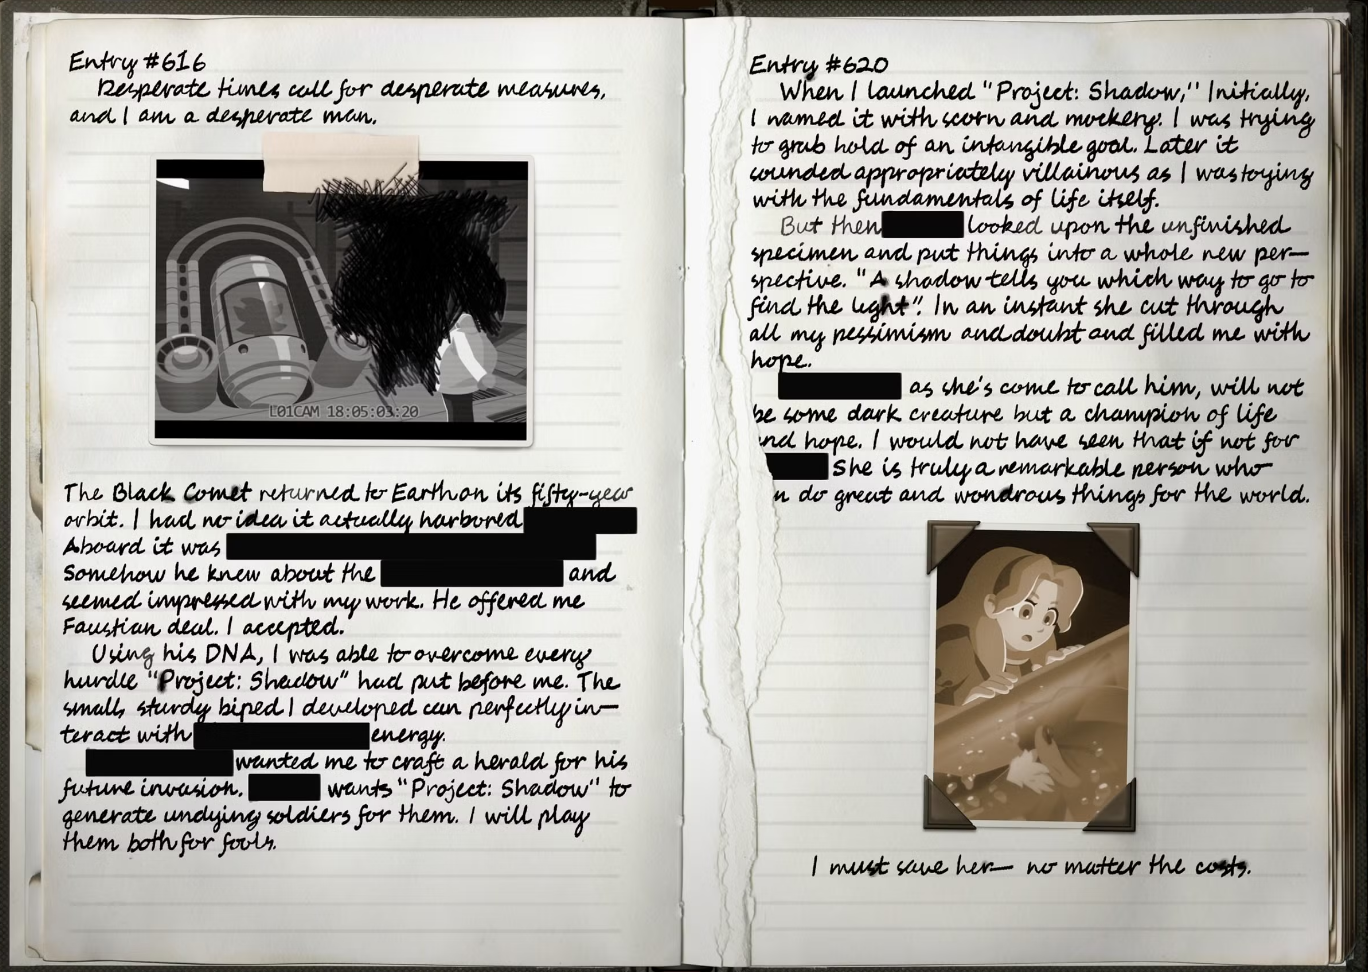 Entry #616
Desperate times call for desperate measures,
and I am a desperate man.
L01CAM 18:05:03:20
The Black Comet returned to Earth on its fifty-year
orbit. I had no idea it actually harbored
Aboard it was
Somehow he knew about the and
seemed impressed with my work. He offered me
Faustian deal. I accepted.
Using his DNA, I was able to overcome every
hurdle "Project: Shadow" had put before me. The
small, sturdy biped I developed can perfectly in-
teract with energy.
wanted me to craft a herald for his
future invasion. wants "Project: Shadow" to
generate undying soldiers for them. I will play
them both for fools.
Entry #620
When I launched "Project: Shadow," Initially,
I named it with scorn and mockery. I was trying
to grab hold of an intangible goal. Later it
sounded appropriately villainous as I was toying
with the fundamentals of life itself.
But then looked upon the unfinished
specimen and put things into a whole new per-
spective. "A shadow tells you which way to go to
find the light". In an instant she cut through
all my pessimism and doubt and filled me with
hope.
as she's come to call him, will not
be some dark creature but a champion of life
and hope. I would not have seen that if not for
She is truly a remarkable person who
n do great and wondrous things for the world.
I must save her— no matter the costs.